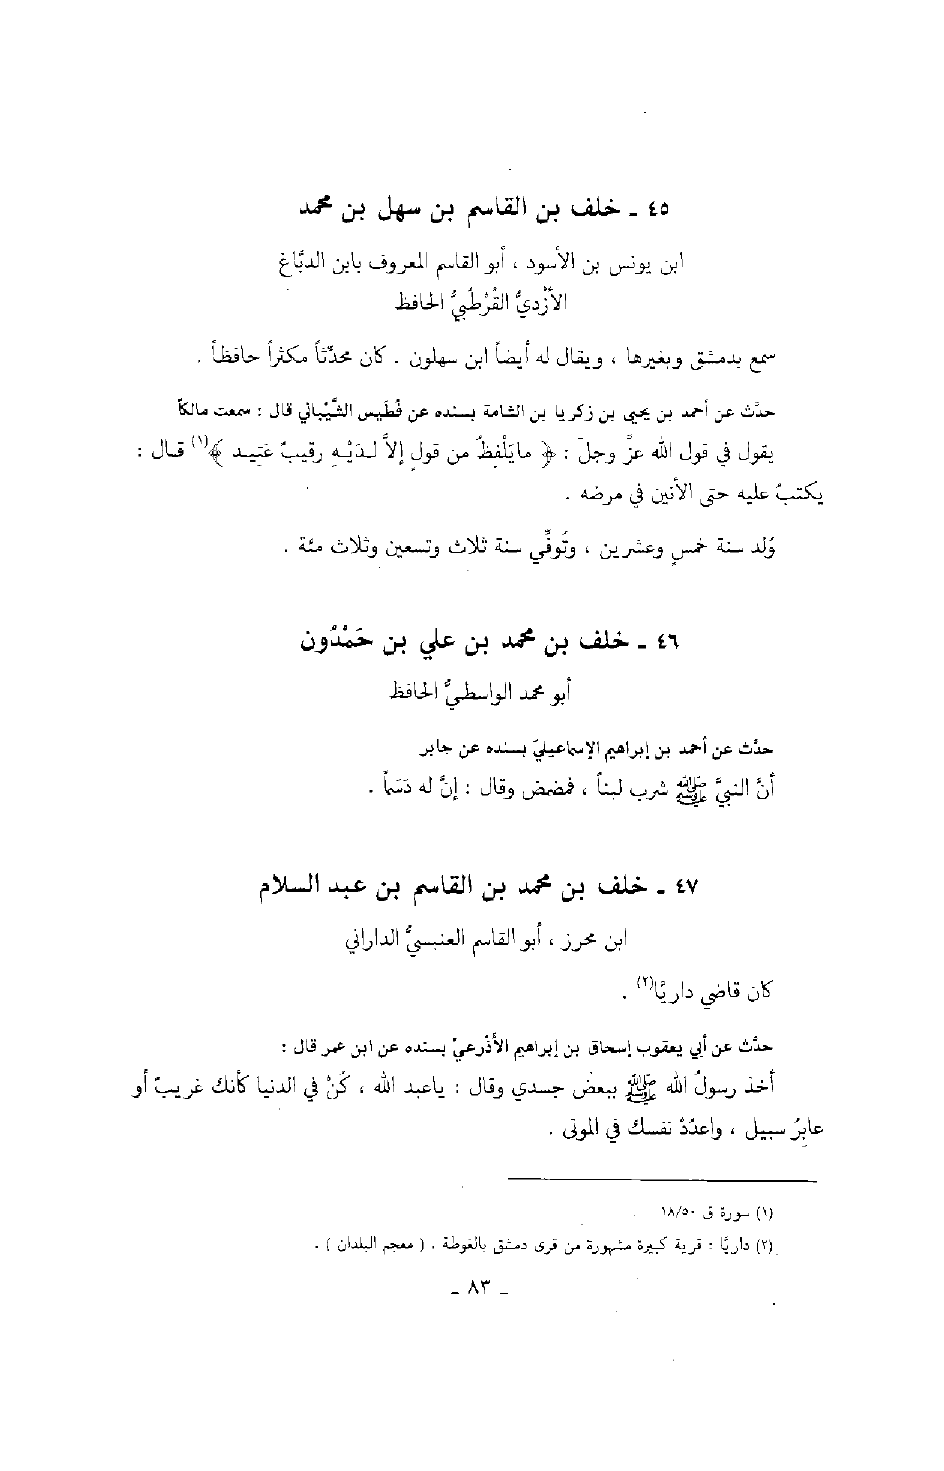 ٤٥ ـ خلف بن القاسم بن سهل بن محمد
ابن يونس بن الأسود ، أبو القاسم المعروف بابن الدبَّاغ
الأزْديُّ القُرْطُبيُّ الحافظ
سمع بدمشق وبغيرها ، ويقال له أيضاً ابن سهلون . كان محدّثاً مكثراً حافظاً .
حدَّث عن أحمد بن يحيى بن زكريا بن الشامة بسنده عن فُطَيس الشَّيْباني قال : سمعت مالكاً
يقول في قول الله عزَّ وجلَّ : ﴿ مايَلْفِظُ من قولٍ إلاَّ لـديْـهِ رقيبٌ عَتِيـد ﴾(١) قـال :
يكتبُ عليه حتى الأنين في مرضه .
وُلد سنة خمسٍ وعشرين ، وتُوفِّي سنة ثلاث وتسعين وثلاث مئة .
٤٦ ـ خلف بن محمد بن علي بن حَمْدُون
أبو محمد الواسطيُّ الحافظ
حدَّث عن أحمد بن إبراهيم الإسماعيليّ بسنده عن جابر
أنَّ النبيَّ ﷺ شرب لبناً ، فمضمض وقال : إنَّ له دَسَماً .
٤٧ ـ خلف بن محمد بن القاسم بن عبد السلام
ابن محرز ، أبو القاسم العنبسيُّ الداراني
كان قاضي داريَّا(٢) .
حدَّث عن أبي يعقوب إسحاق بن إبراهيم الأذْرعيّ بسنده عن ابن عمر قال :
أخذ رسولُ الله ﷺ ببعض جسدي وقال : ياعبد الله ، كُنْ في الدنيا كأنك غريبٌ أو
عابرُ سبيل ، واعدُدْ نفسك في الموتى .
(١) سورة ق ١٨/٥٠
(٢) داريَّا : قرية كبيرة مشهورة من قرى دمشق بالغوطة . ( معجم البلدان ) .
ـ ٨٣ ـ